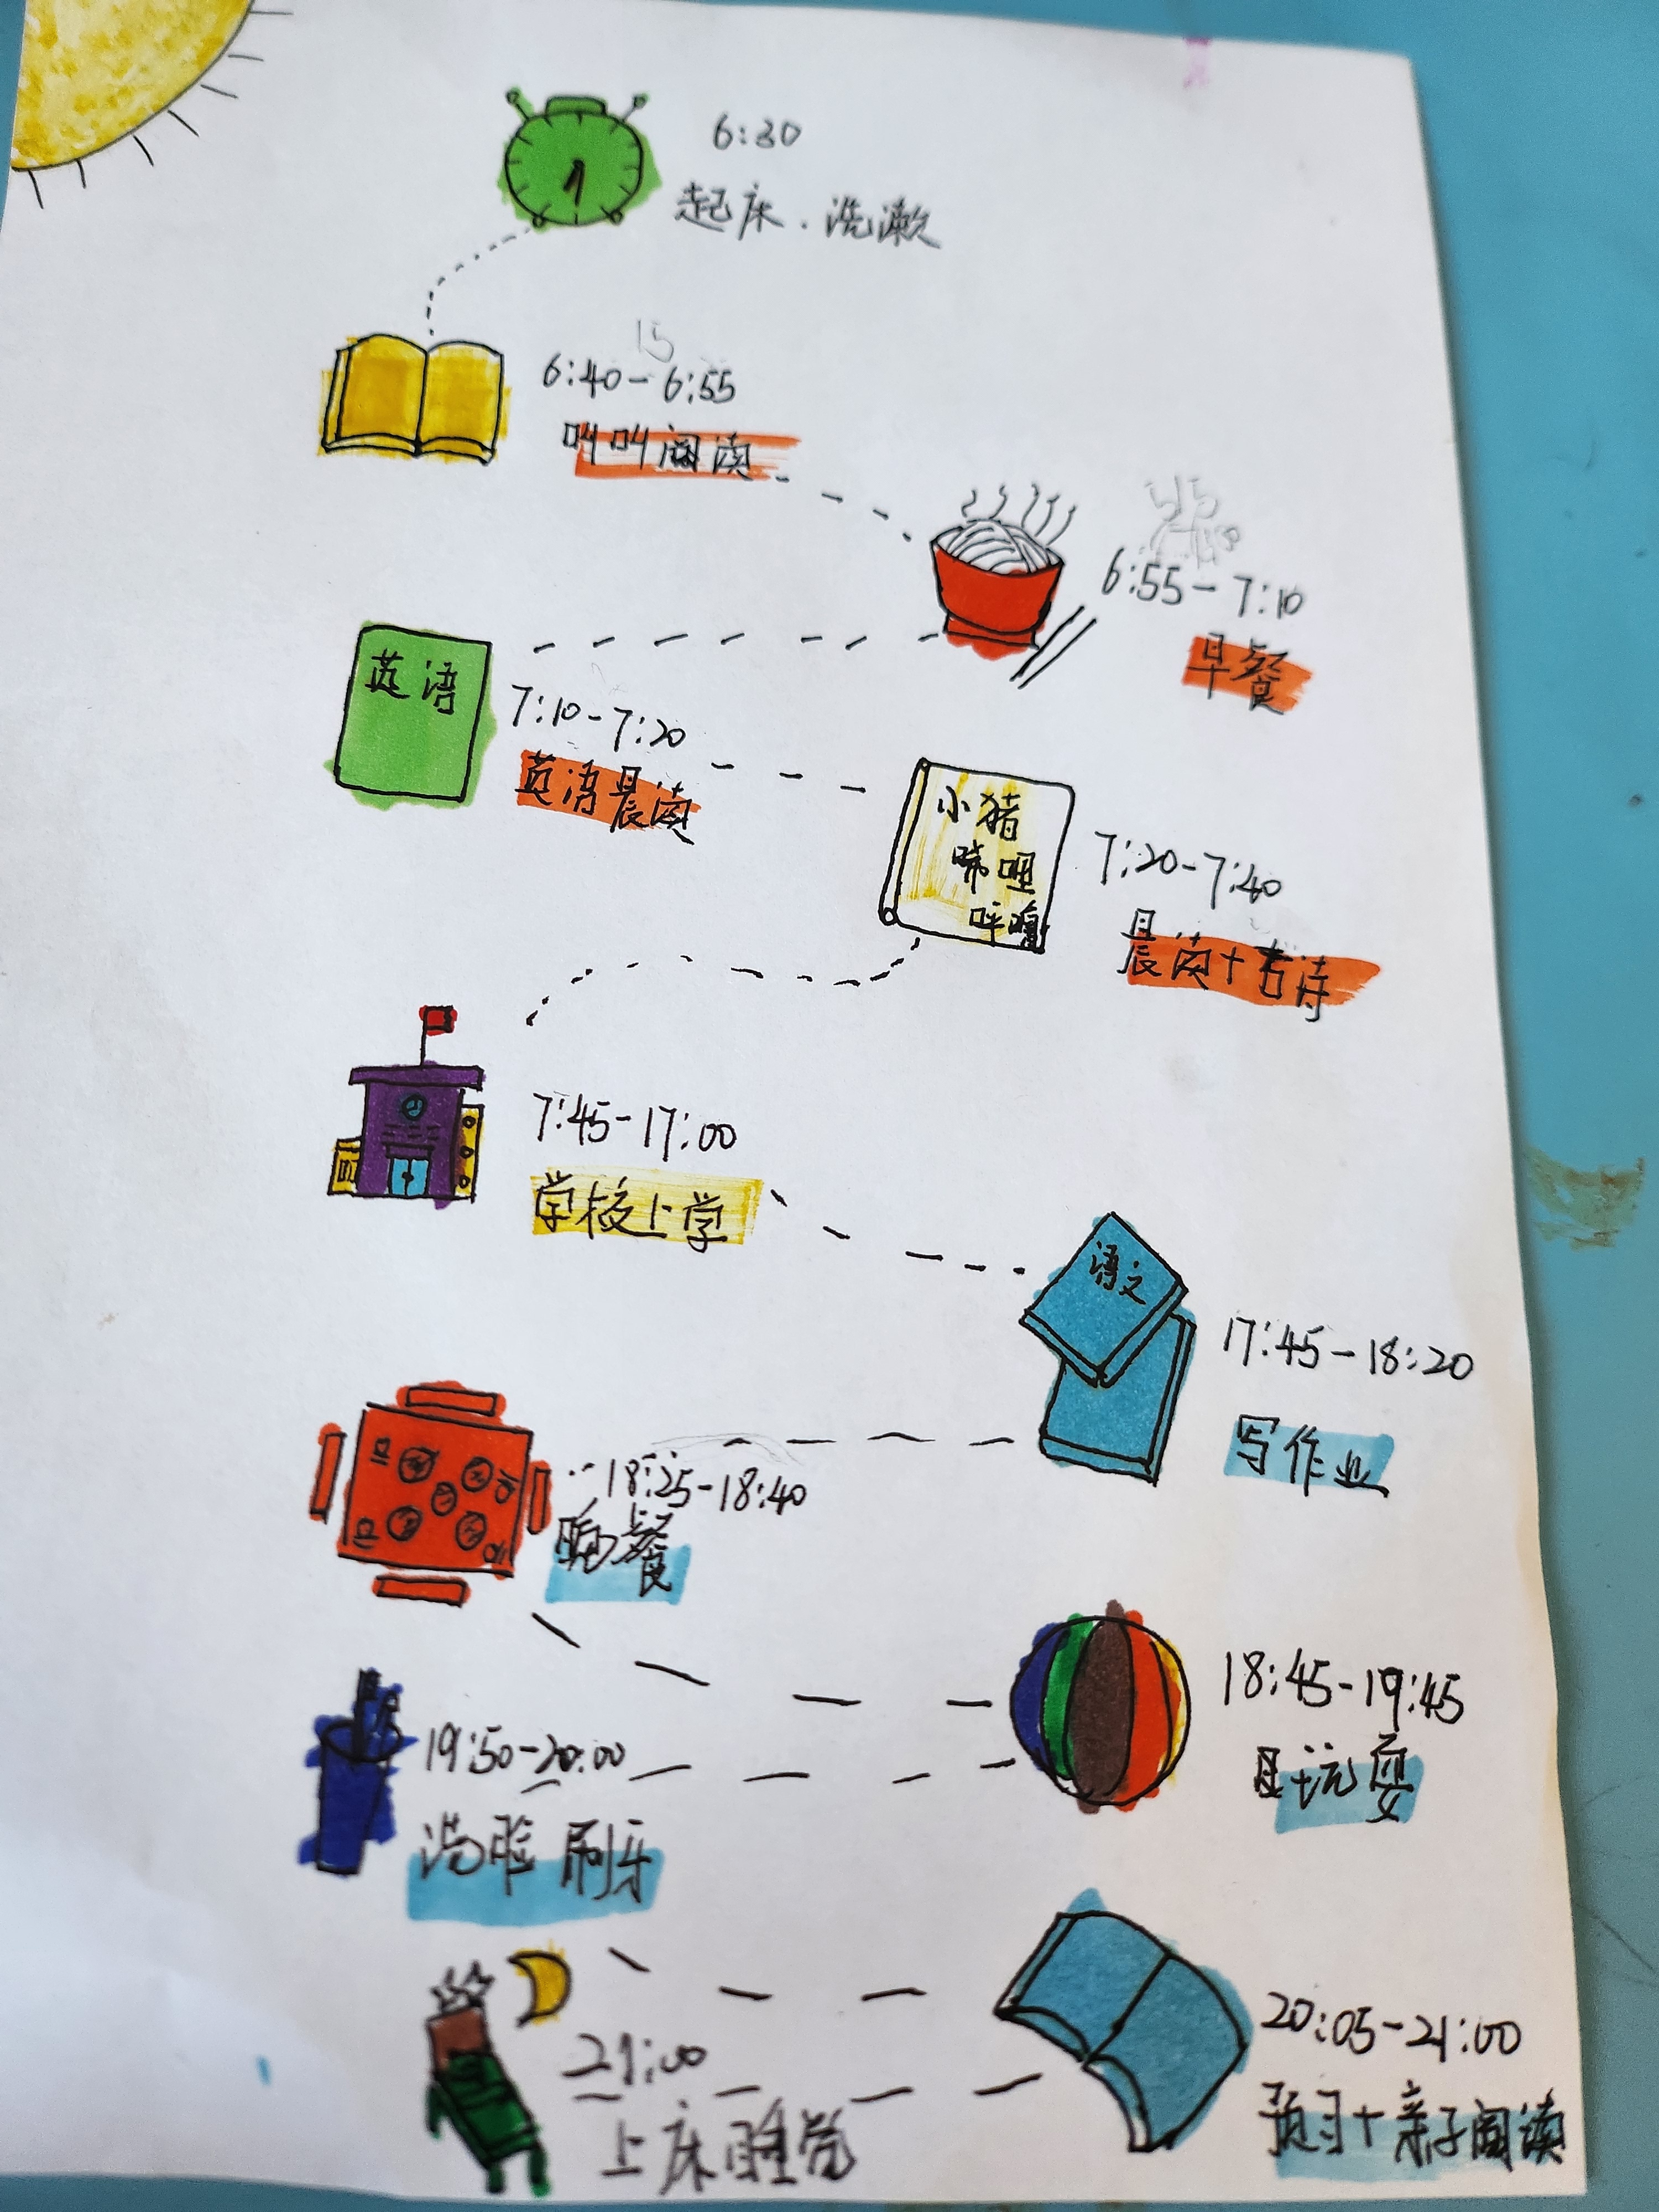 6:30
起床.洗漱
15
6:40-6:55
叫叫阅读
6:55-7:10
早餐
英语
7:10-7:20
英语晨读
小猪
唏哩
呼噜
7:20-7:40
晨读+古诗
7:45-17:00
学校上学
语文
17:45-18:20
写作业
18:25-18:40
晚餐
18:45-19:45
玩耍
19:50-20:00
洗脸 刷牙
20:05-21:00
预习+亲子阅读
21:00
上床睡觉